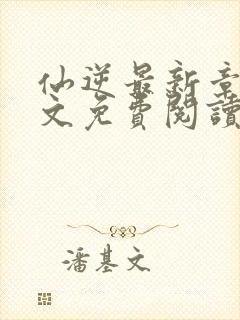 仙逆最新章
文免費閱讀
潘基文